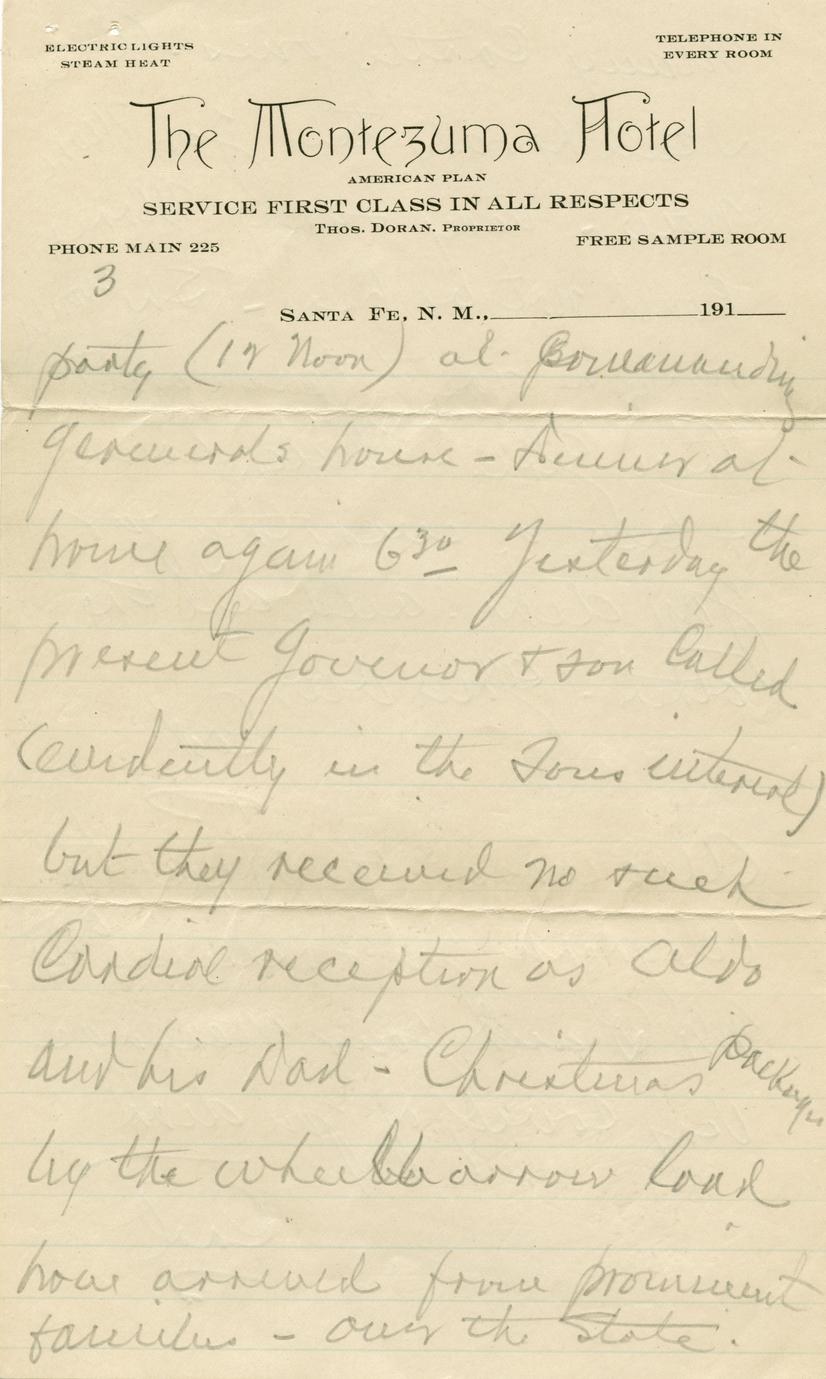 ELECTRIC LIGHTS
STEAM HEAT
TELEPHONE IN
EVERY ROOM
The Montezuma Hotel
AMERICAN PLAN
SERVICE FIRST CLASS IN ALL RESPECTS
THOS. DORAN. PROPRIETOR
PHONE MAIN 225
FREE SAMPLE ROOM
3
SANTA FE, N. M., 191
party (12 Noon) at Commanding
Generals house - Dinner at
home again 6 30 Yesterday the
present Govenor & son Called
(evidently in the Sons interest)
but they received no such
Cordial reception as Aldo
and his Dad - Christmas Packages
by the wheelbarrow load
have arrived from prominent
families - over the State.